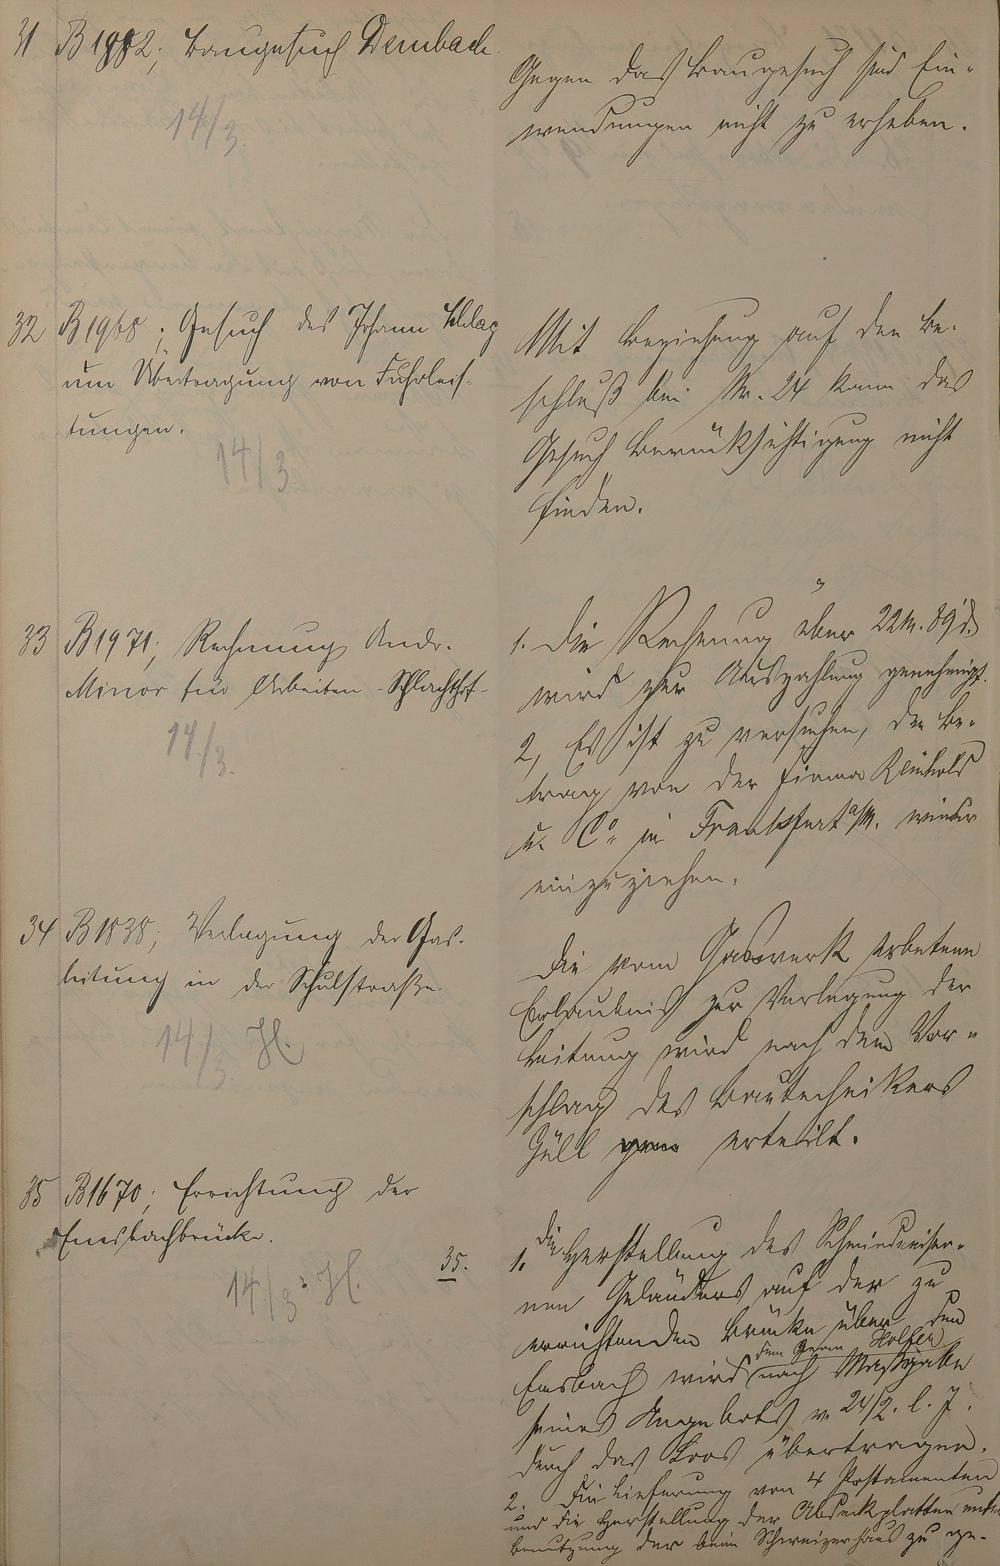 31 B 1982; Baugesuch Dernbach.
14/3.
Gegen das Baugesuch sind Ein-
wendungen nicht zu erheben.
32 B 1968; Gesuch des Johann
um Übertragung von Fuhrleis-
tungen.
14/3.
Mit Beziehung auf den Be-
schluß bei Nr. 24 kann das
Gesuch Berücksichtigung nicht
finden.
33 B 1971; Rechnung Andr.
Minor für Arbeiten - Schlachthof -
14/3.
1. Die Rechnung über 22 M. 89 d.
wird zur Auszahlung genehmigt.
2, Es ist zu versuchen, den Be-
trag von der Firma Reinhold
u. Co. in Frankfurt a/M. wieder
einzuziehen.
34 B 1838; Verlegung der Gas-
leitung in der Schulstraße.
14/3. H.
Die vom Gaswerk erbetene
Erlaubnis zur Verlegung der
Leitung wird nach dem Vor-
schlag des Bautechnikers
Güll erteilt.
35 B 1670; Errichtung der
Emsbachbrücke.
14/3. H.
35.
1. Die Herstellung des Schmiedeeiser-
nen Geländers auf der zu
errichtenden Brücke über den
Emsbach wird dem Georg nach Maßgabe
seines Angebots v. 24/2. l. J.
durch das Loos übertragen.
2. Die Lieferung von 4 Postamenten
und die Herstellung der Abdeckplatten unter
Benutzung der beim Schweizerhaus zu ge-